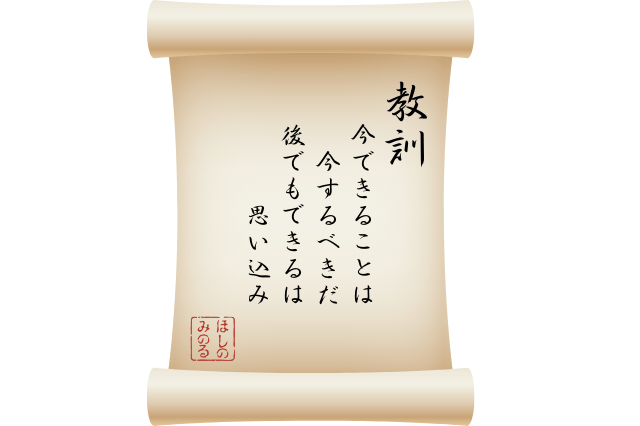 教訓
今できることは
今するべきだ
後でもできるは
思い込み
ほしの
みのる